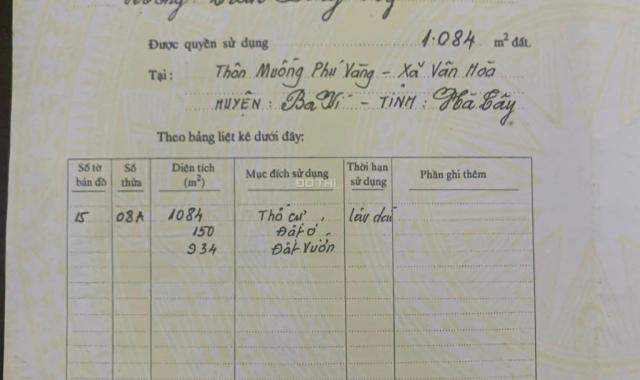 Được quyền sử dụng 1.084 m² đất.
Tại: Thôn Muồng Phú Vàng - Xã Vân Hoà
HUYỆN: Ba Vì - TỈNH: Hà Tây
Theo bảng liệt kê dưới đây:
Số tờ bản đồ Số thửa Diện tích (m²) Mục đích sử dụng Thời hạn sử dụng Phần ghi thêm
15 08A 1084 Thổ cư, lâu dài
150 Đất ở
934 Đất vườn